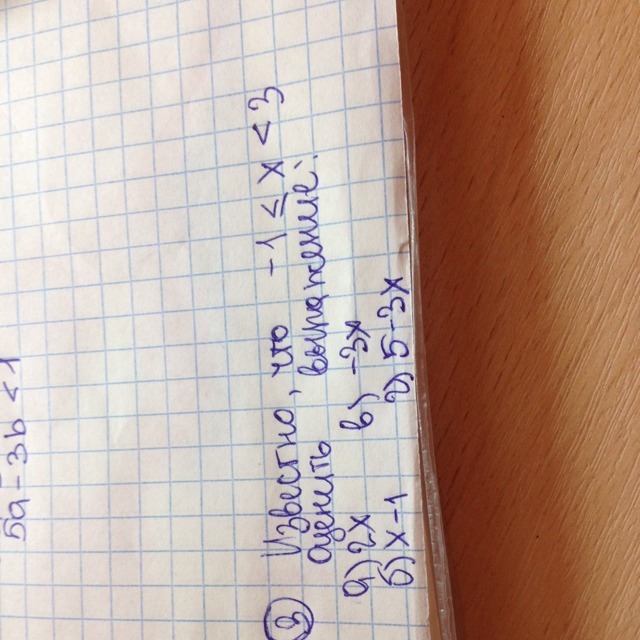 5a - 3b < 1
③ Известно, что -1 ≤ x < 3
оценить выражение:
а) 2x в) -3x
б) x - 1 г) 5 - 3x